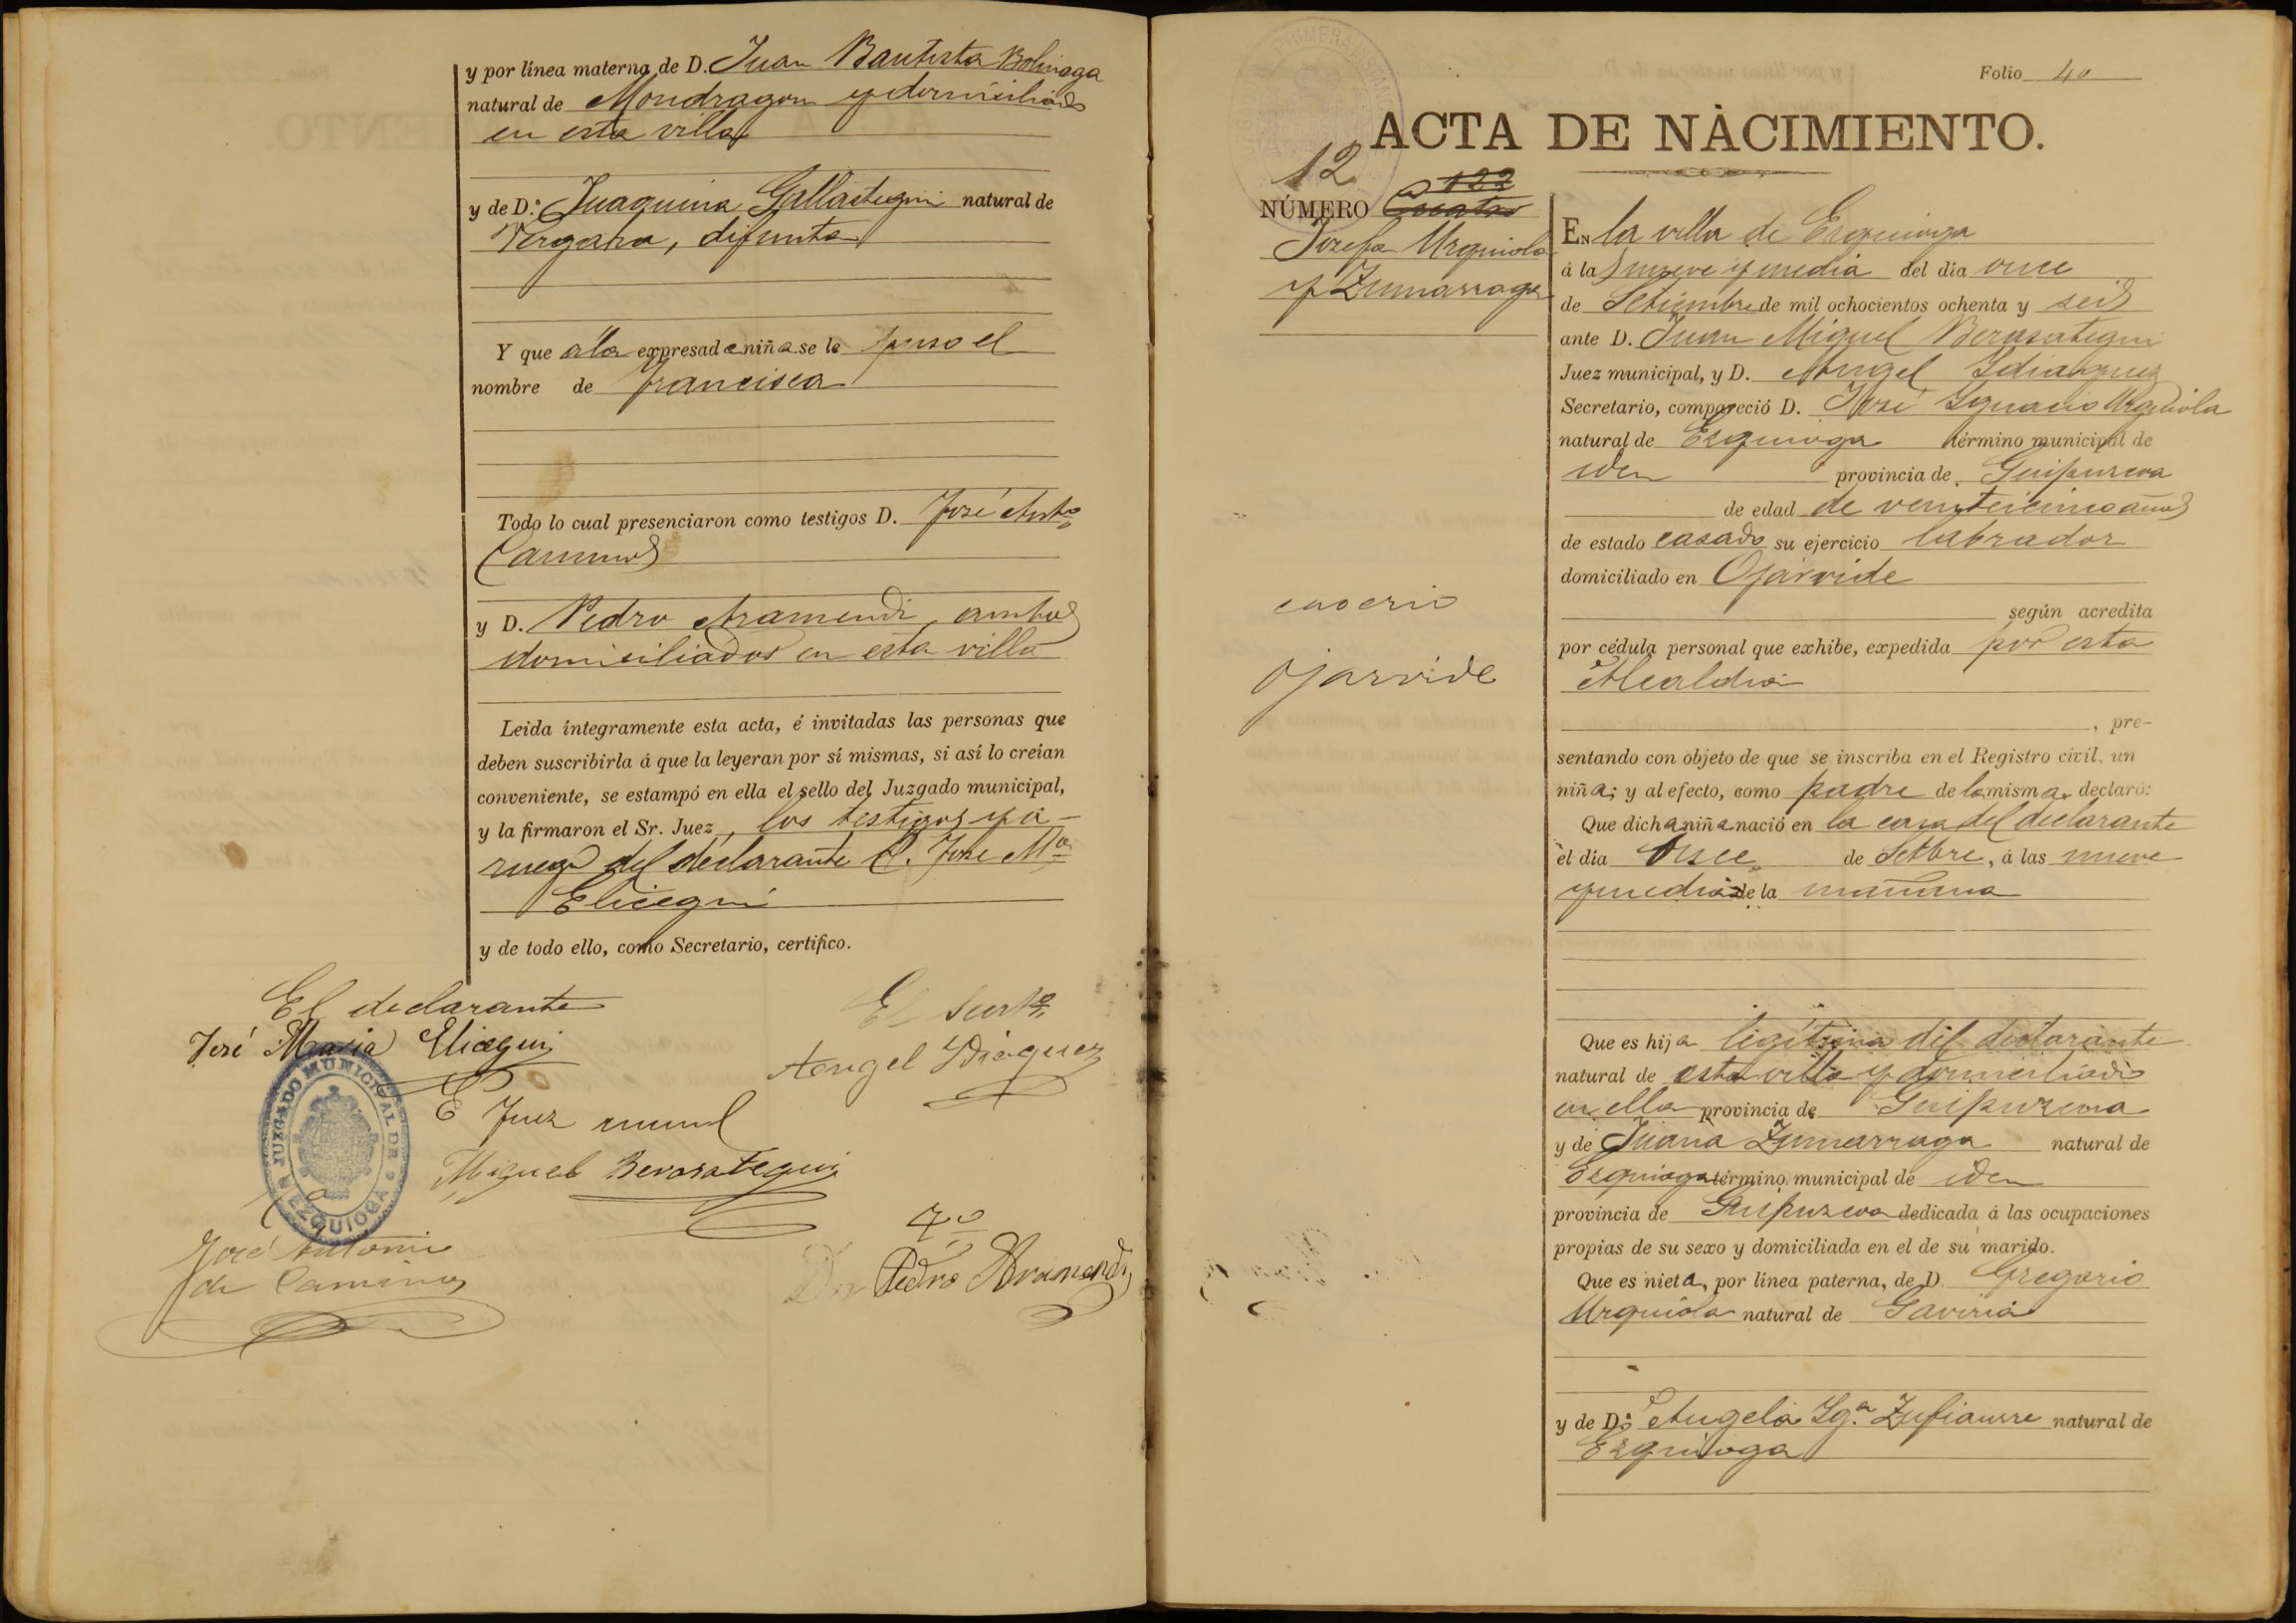 y por línea materna de D. Juan Bautista Bolinaga
natural de Mondragon y domiciliado
en esta villa
y de D.ª Juaquina Gallastegui natural de
Vergara, difunta
Y que á la expresada niña se le puso el
nombre de Francisca
Todo lo cual presenciaron como testigos D. José Anto
Caminos
y D. Pedro Aramendi, ambos
domiciliados en esta villa
Leida íntegramente esta acta, é invitadas las personas que
deben suscribirla á que la leyeran por sí mismas, si así lo creían
conveniente, se estampó en ella el sello del Juzgado municipal,
y la firmaron el Sr. Juez, los testigos y á
ruego del declarante D. José Mª
Elicegui
y de todo ello, como Secretario, certifico.
El declarante
José Maria Elicegui
El Secrto
Angel Ydiaquez
JUZGADO MUNICIPAL DE EZQUIOGA
El Juez munl
Miguel Berasategui
José Antonio
de Caminos
Tgo
Dn Pedro Aramendi
Folio 40
ACTA DE NACIMIENTO.
12
122
NÚMERO Cuatro
Josefa Urquiola
y Zumarraga
caserio
Ojarvide
EN la villa de Ezquioga
á las nueve y media del dia once
de Setiembre de mil ochocientos ochenta y seis
ante D. Juan Miguel Berasategui
Juez municipal, y D. Angel Ydiaquez
Secretario, compareció D. José Ygnacio Urquiola
natural de Ezquioga término municipal de
iden provincia de Guipuzcoa
de edad de venteicinco años
de estado casado su ejercicio labrador
domiciliado en Ojarvide
según acredita
por cédula personal que exhibe, expedida por esta
Alcaldia
, pre-
sentando con objeto de que se inscriba en el Registro civil, un
niña; y al efecto, como padre de la misma, declaró:
Que dicha niña nació en la casa del declarante
el dia once de Setbre, á las nueve
y media de la mañana
Que es hija legítima del declarante
natural de esta villa y domiciliado
en ella provincia de Guipuzcoa
y de Juana Zumarraga natural de
Ezquioga término municipal de iden
provincia de Guipuzcoa dedicada á las ocupaciones
propias de su sexo y domiciliada en el de su marido.
Que es nieta, por línea paterna, de D. Gregorio
Urquiola natural de Gaviria
y de D.ª Angela Yg.ª Zufiaurre natural de
Ezquioga